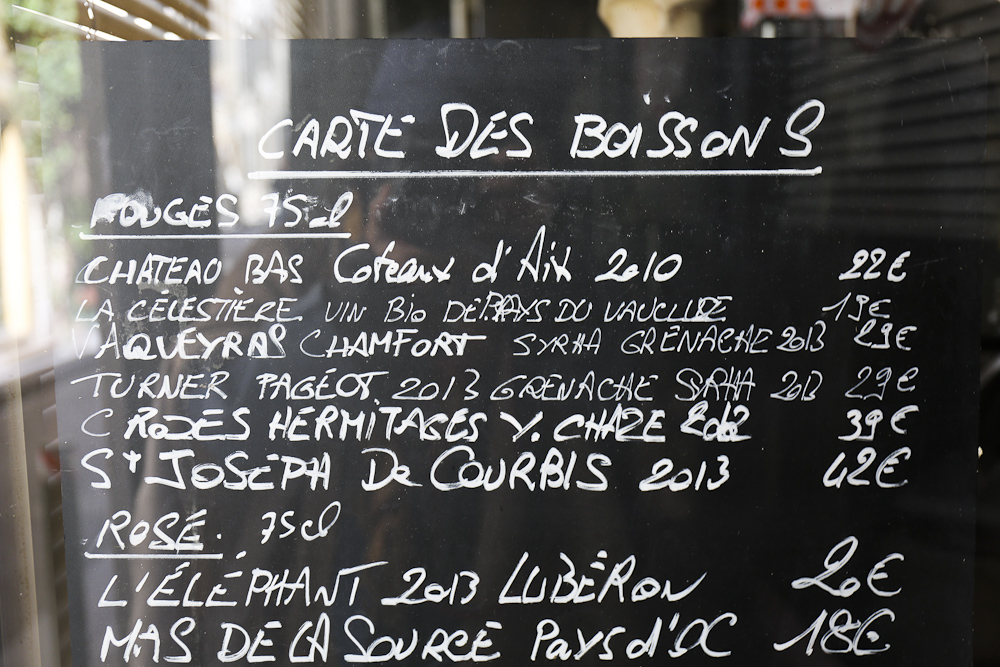 CARTE DES BOISSONS
ROUGES 75cl
CHATEAU BAS Coteaux d'Aix 2010 22€
LA CÉLESTIÈRE. VIN Bio DE PAYS DU VAUCLUSE 19€
VAQUEYRAS CHAMFORT SYRHA GRENACHE 2013 29€
TURNER PAGÉOT. 2013 GRENACHE SYRHA 2013 29€
CROZES HERMITAGES Y. CHAZE 2012 39€
St JOSEPH De COURBIS 2013 42€
ROSÉ. 75cl
L'ÉLÉPHANT 2013 LUBÉRON 20€
MAS DE LA SOURCE Pays d'OC 18€